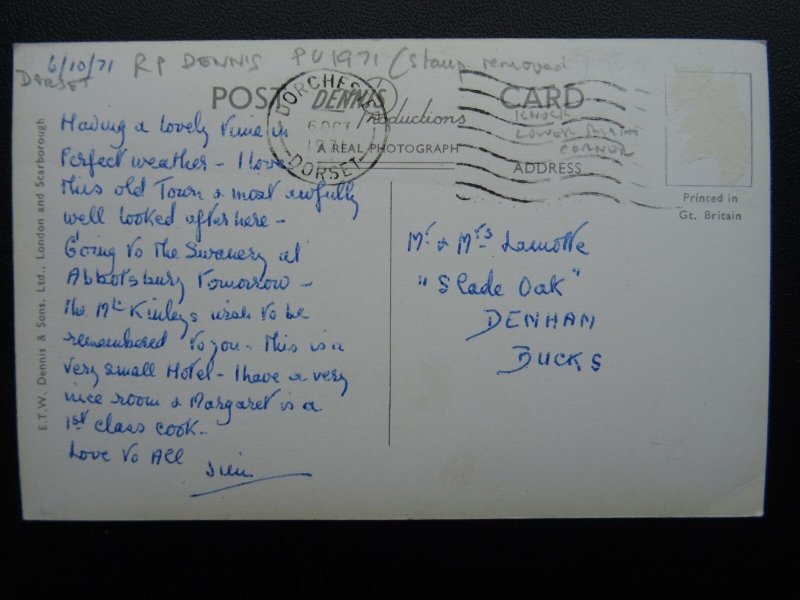 6/10/71 RP DENNIS PU 1971 (Stamp removed
DORSET
POST CARD
DENNIS
Productions
A REAL PHOTOGRAPH
ADDRESS
DORCHESTER
6 OCT
1971
DORSET
KNOCK
CORNER
Printed in
Gt. Britain
E.T.W. Dennis & Sons, Ltd., London and Scarborough
Having a lovely time in
Perfect weather - I love
this old Town & most awfully
well looked after here -
Going to the Swanery at
Abbotsbury Tomorrow -
The McKinleys wish to be
remembered to you - This is a
very small Hotel - I have a very
nice room & Margaret is a
1st class cook -
Love to All
Mr & Mrs Lamotte
"Slade Oak"
DENHAM
BUCKS